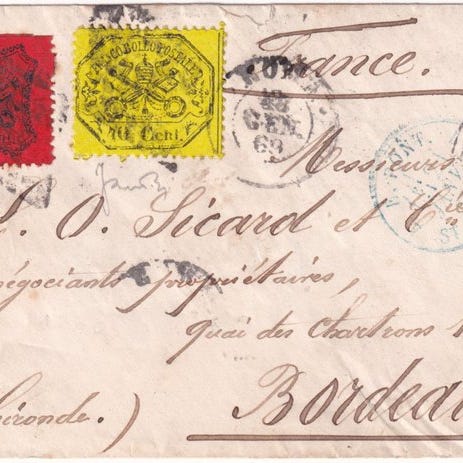 France.
FRANCO BOLLO POSTALE
40 Cent.
ROMA
GEN.
68
Messieurs
L. O. Sicard et Cie
négociants propriétaires,
quai des Chartrons
Bordea
Gironde.)